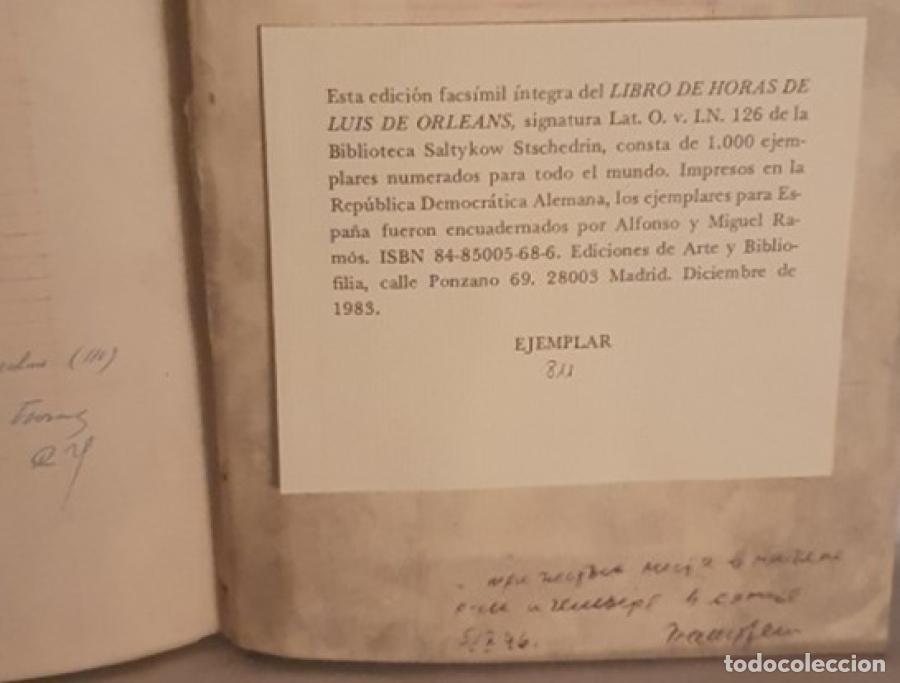 Esta edición facsímil íntegra del LIBRO DE HORAS DE
LUIS DE ORLEANS, signatura Lat. O. v. I.N. 126 de la
Biblioteca Saltykow Stschedrin, consta de 1.000 ejem-
plares numerados para todo el mundo. Impresos en la
República Democrática Alemana, los ejemplares para Es-
paña fueron encuadernados por Alfonso y Miguel Ra-
mós. ISBN 84-85005-68-6. Ediciones de Arte y Biblio-
filia, calle Ponzano 69. 28003 Madrid. Diciembre de
1983.
EJEMPLAR
811
todocoleccion